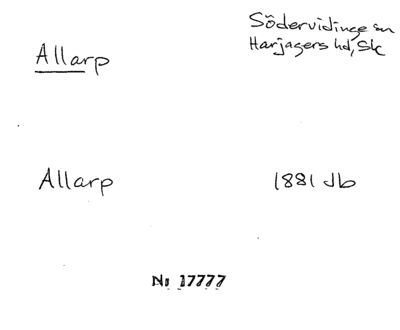 Södervidinge sn
Allarp
Harjagers hd, Sk
Allarp
1881 Jb
No 17777